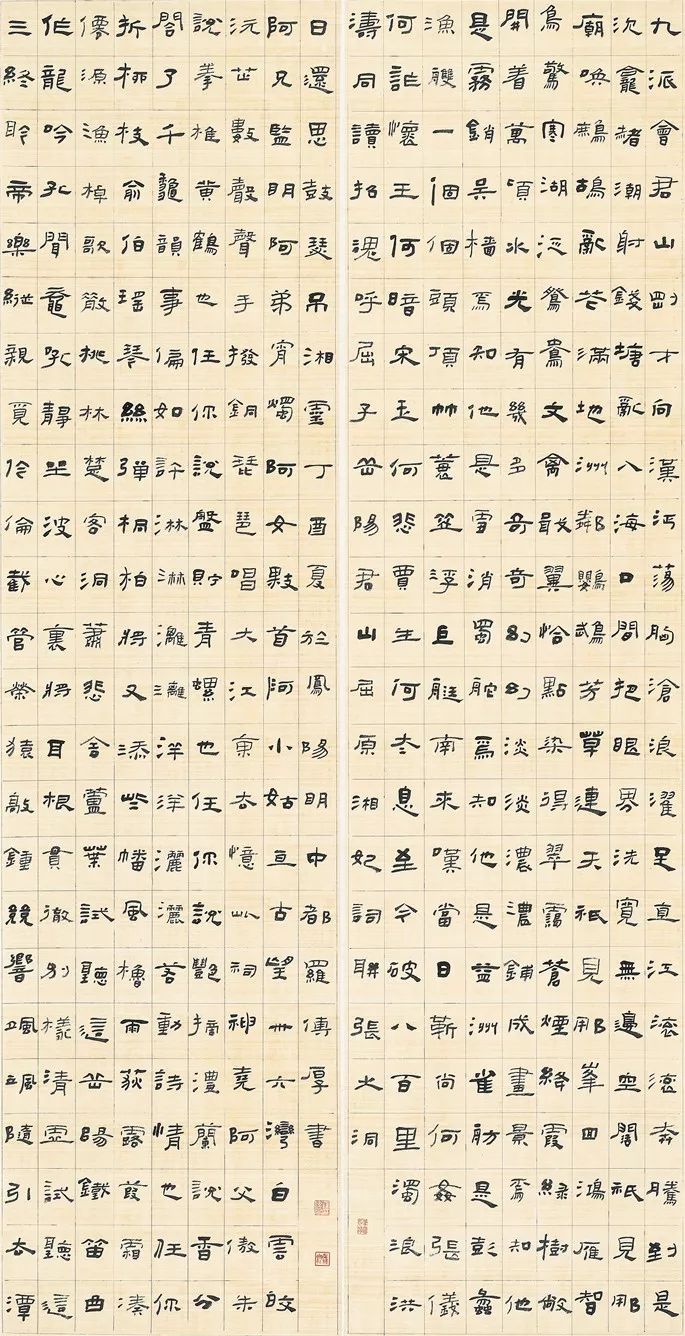 九派會君山剛才向漢沔蕩胸滄浪濯足直江滾滾奔騰到是
沈龕赭潮射錢塘亂入海口間把眼界洗寬無邊空闊祇見那
廟喚鷓鴣亂花滿地洲鄰鸚鵡芳草連天祇見那峯回鴻雁智
鳥驚寒湖泛鴛鴦文禽戢翼恰點染得翠靄蒼煙絳霞綠樹敞
開着萬頃水光有幾多奇奇幻幻淡淡濃濃鋪成畫景焉知他
是霧銷吳檣焉知他是雪消蜀舵焉知他是益洲雀舫是彭蠡
漁艭一個個頭頂竹蓑笠浮巨艇南來嘆當日靳尚何姦張儀
何詐懷王何暗宋玉何悲賈生何太息至今破八百里濁浪洪
濤同讀招魂呼屈子岳陽君山屈原湘妃詞聯張火洞
三終聆帝樂縱親覓伶倫截管榮猿敲鍾競響颯颯隨引去潭
作龍吟孔聞鼉吼靜坐波心裏將耳根貫徹別樣清虛試聽這
僊源漁棹歌散桃林楚客洞蕭悲含蘆葉試聽這岳陽鐵笛曲
折柳枝俞伯瑤琴絲彈桐柏將又添些幡風櫓雨荻露葭霜湊
閤了千齣韻事偏如許淋淋漓漓洋洋灑灑惹動詩情也任你
說拳椎黃鶴也任你說盤貯青螺也任你說艷摘澧蘭說香分
沅芷數聲聲手撥銅琵琶唱大江東去憶此祠神堯阿父傲朱
阿兄監明阿弟宵燭阿女敤首阿小姑亘古望卅六灣白雲皎
日還思鼓瑟吊湘靈丁酉夏於鳳陽明中都羅傳厚書